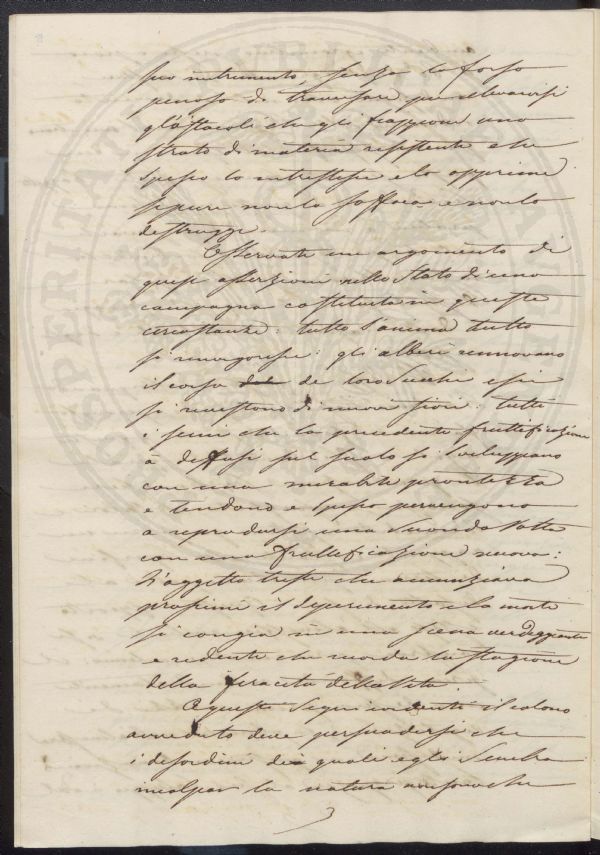 suo nutrimento, senza lo sforzo
penoso di traversare per elevarsi
gl'ostacoli che gli frappone uno
strato di materia resistente che
spesso lo intristisce e lo opprime
seppure non lo soffoca e non lo
distrugge.
Osservate in argomento di
queste asserzioni nello Stato di una
campagna costituita in queste
circostanze: tutto s'anima tutto
si rinvigorisce: gli alberi rinnovano
il corso de loro Succhi e
si rivestono di nuovi fiori: tutti
i semi che la precedente fruttificazione
à diffusi sul suolo si sviluppano
con una mirabile prontezza
e tendono e spesso pervengono
a riprodursi una Seconda Volta
con una fruttificazione nuova:
L'aspetto triste che annunziava
prossimi il deperimento e la morte
si cangia in una scena verdeggiante
e ridente che ricorda la stagione
della feracità della Vita.
A questi Segni evidenti il colono
avveduto deve persuadersi che
i disordini de quali egli Sembra
incolpar la natura non sono che
PROSPERITATI PUBLICAE AUGENDAE